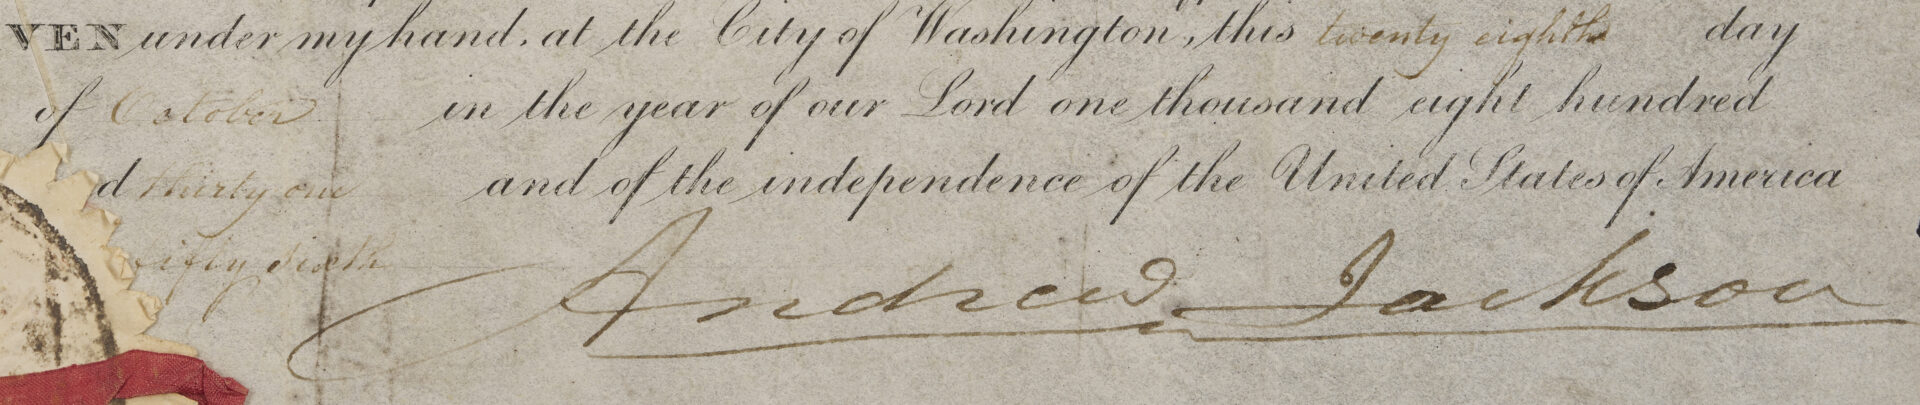 VEN under my hand, at the City of Washington, this twenty eighth day
of October in the year of our Lord one thousand eight hundred
d thirty one and of the independence of the United States of America
fifty sixth
Andrew Jackson